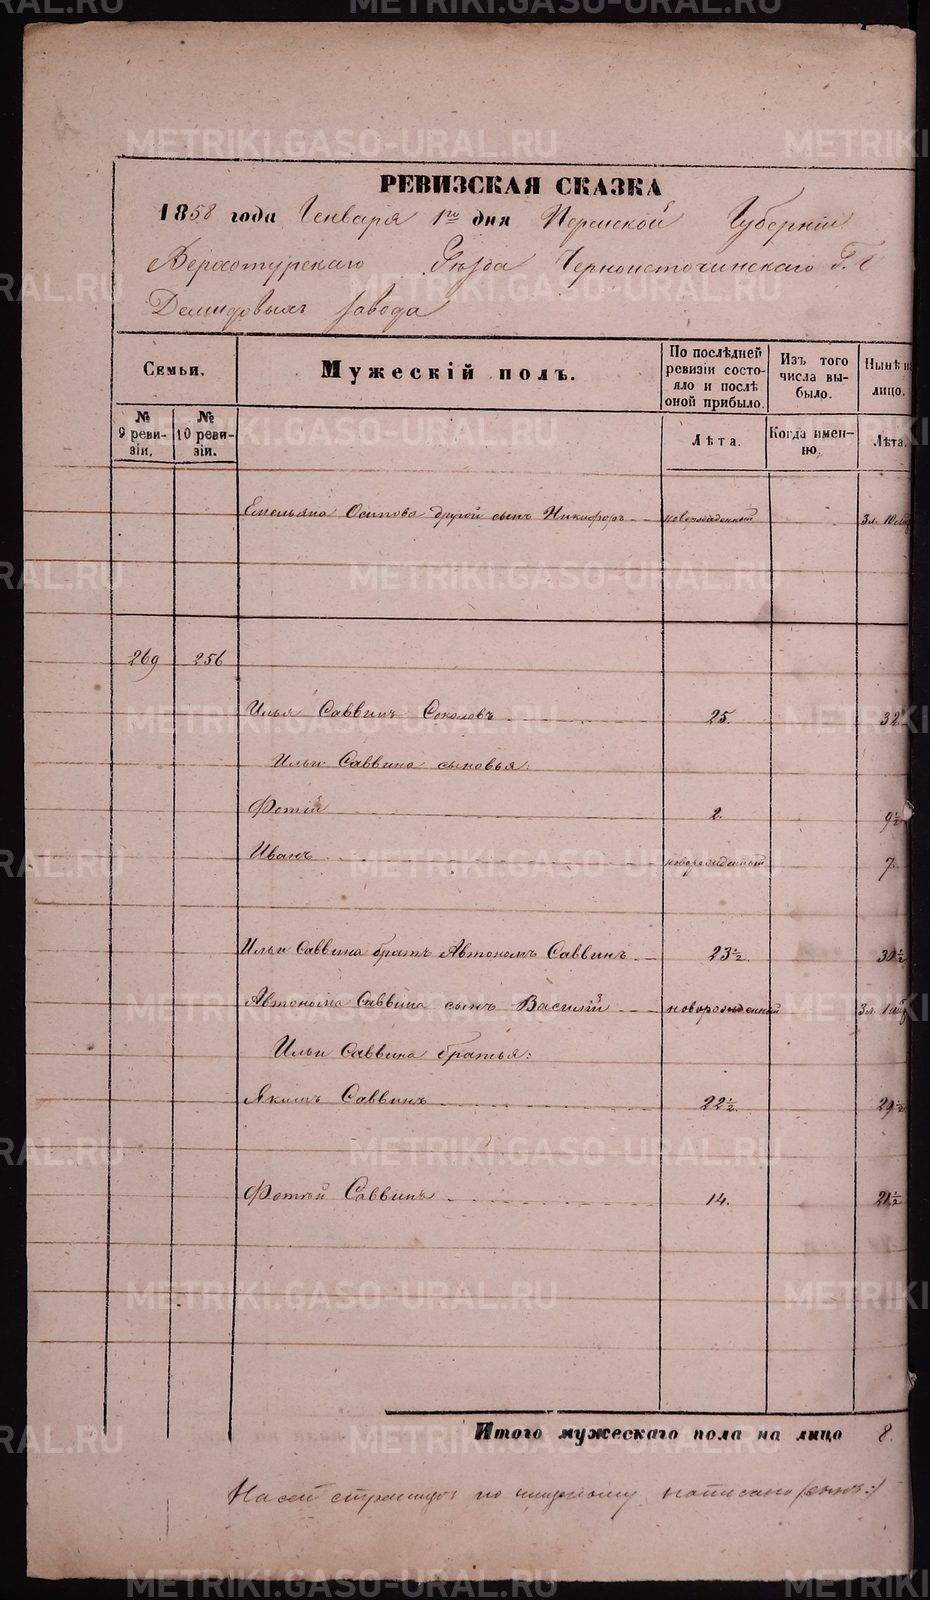 РЕВИЗСКАЯ СКАЗКА
1858 года Генваря 1го дня Пермской Губерніи
Верхотурскаго Уѣзда Черноисточинскаго Г.г
Демидовыхъ завода
Семьи.
Мужескій полъ.
По послѣдней ревизіи состояло и послѣ оной прибыло.
Изъ того числа выбыло.
Нынѣ на лицо.
№ 9 ревизіи.
№ 10 ревизіи.
Лѣта.
Когда именно.
Лѣта.
Емельяна Осипова другой сынъ Никифоръ новорожденный 3 л. 10 мѣ
269 256
Илья Саввинъ Соколовъ 25. 32
Ильи Саввина сыновья:
Фотій 2 9½
Иванъ новорожденный 7.
Ильи Саввина братъ Автономъ Саввинъ 23½ 30½
Автонома Саввина сынъ Василій новорожденный 3 л. 1 мѣ
Ильи Саввина братья:
Якимъ Саввинъ 22½ 29½
Фотѣй Саввинъ 14. 21½
Итого мужескаго пола на лицо 8.
На сей страницѣ по написано
METRIKI.GASO-URAL.RU